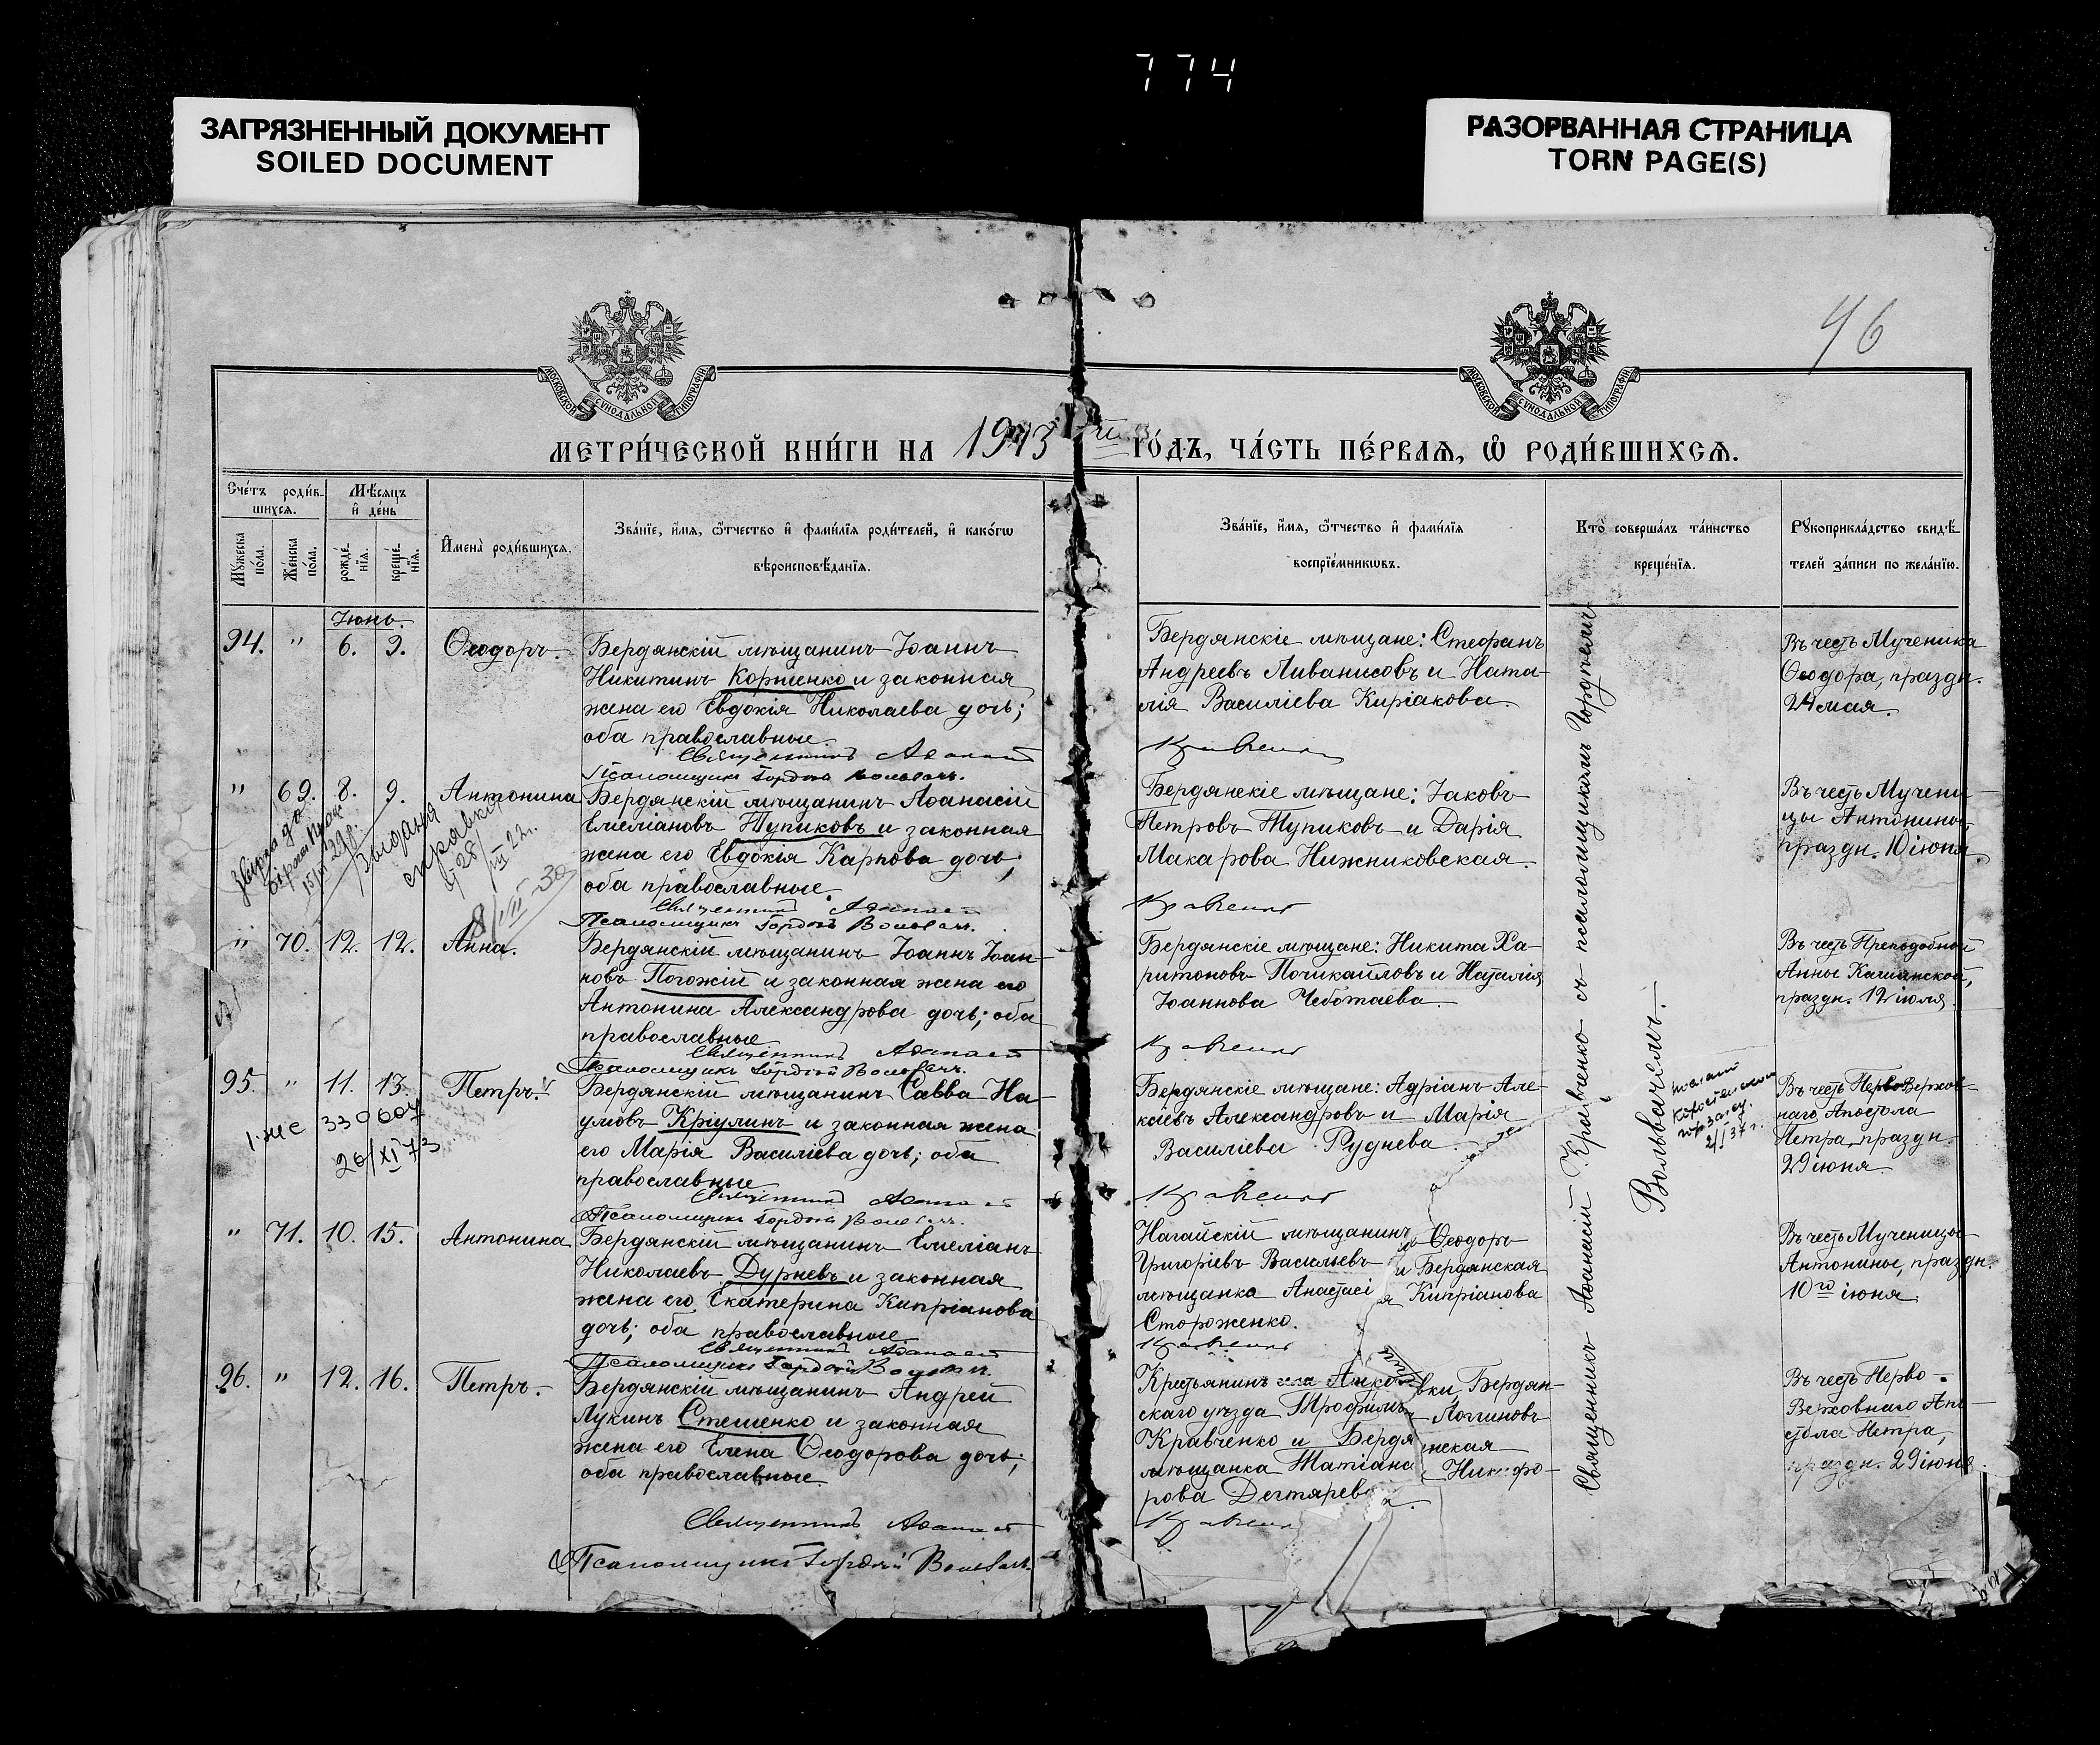 774
ЗАГРЯЗНЕННЫЙ ДОКУМЕНТ
SOILED DOCUMENT
РАЗОРВАННАЯ СТРАНИЦА
TORN PAGE(S)
46
МОСКОВСКОЙ СѴНОДАЛЬНОЙ ТИПОГРАФІИ
МОСКОВСКОЙ СѴНОДАЛЬНОЙ ТИПОГРАФІИ
МЕТРИ́ЧЕСКОЙ КНИ́ГИ НА 1913 ГО́ДЪ, ЧА́СТЬ ПЕ́РВАѦ, Ѡ РОДИ́ВШИХСѦ.
Сче́тъ роди́вшихсѧ.
Мꙋжеска по́ла.
Же́нска по́ла.
Мѣ́сѧцъ и҆ де́нь
рожде́нїѧ.
креще́нїѧ.
И҆мена̀ роди́вшихсѧ.
Зва́нїе, и҆́мѧ, ѻ҆́тчество и҆ фами́лїѧ роди́телей, и҆ како́гѡ
вѣроисповѣ́данїѧ.
Зва́нїе, и҆́мѧ, ѻ҆́тчество и҆ фами́лїѧ
воспрїе́мникѡвъ.
Кто̀ соверша́лъ та́инство
креще́нїѧ.
Рꙋкоприкла́дство свидѣ́-
телей за́писи по жела́нїю.
Іюнь.
94. " 6. 9. Ѳеодоръ.
Бердянскій мѣщанинъ Іоаннъ
Никитинъ Корженко и законная
жена его Евдокія Николаева дочь;
оба православные.
Священникъ Аѳанасій
Псаломщикъ Гордій Вольвач.
Бердянскіе мѣщане: Стефанъ
Андреевъ Ливанисовъ и Ната-
лія Василіева Киріакова.
Кравченко
Въ честь Мученика
Ѳеодора, праздн.
24 мая.
" 69. 8. 9. Антонина
Бердянскій мѣщанинъ Аѳанасій
Емеліановъ Тупиковъ и законная
жена его Евдокія Карпова дочь;
оба православные.
Священникъ Аѳанасій
Псаломщикъ Гордій Вольвач.
Бердянскіе мѣщане: Іаковъ
Петровъ Тупиковъ и Дарія
Макарова Нижниковская.
Кравченко
Въ честь Мучени-
цы Антонины,
праздн. 10 іюня
справка
28/VII 22г.
8/VII-30
" 70. 12. 12. Анна.
Бердянскій мѣщанинъ Іоаннъ Іоан-
новъ Погожій и законная жена его
Антонина Александрова дочь; оба
православные
Священникъ Аѳанасій
Псаломщикъ Гордій Вольвач.
Бердянскіе мѣщане: Никита Ха-
ритоновъ Почикайловъ и Наталія
Іоаннова Чеботаева.
Кравченко
Въ честь Преподобной
Анны Кашинской,
праздн. 12 іюля.
95. " 11. 13. Петръ.
Бердянскій мѣщанинъ Савва На-
умовъ Кріулинъ и законная жена
его Марія Василіева дочь; оба
православные
Священникъ Аѳанасій
Псаломщикъ Гордій Вольвач.
Бердянскіе мѣщане: Адріанъ Але-
ксіевъ Александровъ и Марія
Василіева Руднева.
Кравченко
Въ честь Первоверхов-
наго Апостола
Петра, праздн.
29 іюня
330607
20/XI 73
" 71. 10. 15. Антонина
Бердянскій мѣщанинъ Емеліанъ
Николаевъ Дурневъ и законная
жена его Екатерина Кипріанова
дочь; оба православные
Священникъ Аѳанасій
Псаломщикъ Гордій Вольвач.
Нагайскій мѣщанинъ Ѳеодоръ
Григоріевъ Васильевъ и Бердянская
мѣщанка Анастасія Кипріанова
Стороженко.
Кравченко
Въ честь Мученицы
Антонины, праздн.
10го іюня.
96. " 12. 16. Петръ.
Бердянскій мѣщанинъ Андрей
Лукинъ Стешенко и законная
жена его Елена Ѳеодорова дочь;
оба православные.
Священникъ Аѳанасій
Псаломщикъ Гордій Вольвач.
Крестьянинъ села Бердян-
скаго уѣзда Трофимъ Логиновъ
Кравченко и Бердянская
мѣщанка Татіана Никифо-
рова Дегтярева.
Кравченко
Въ честь Перво-
верховнаго Апо-
стола Петра,
праздн. 29 іюня
Священникъ Аѳанасій Кравченко съ псаломщикомъ Гордіемъ
Вольвачемъ.